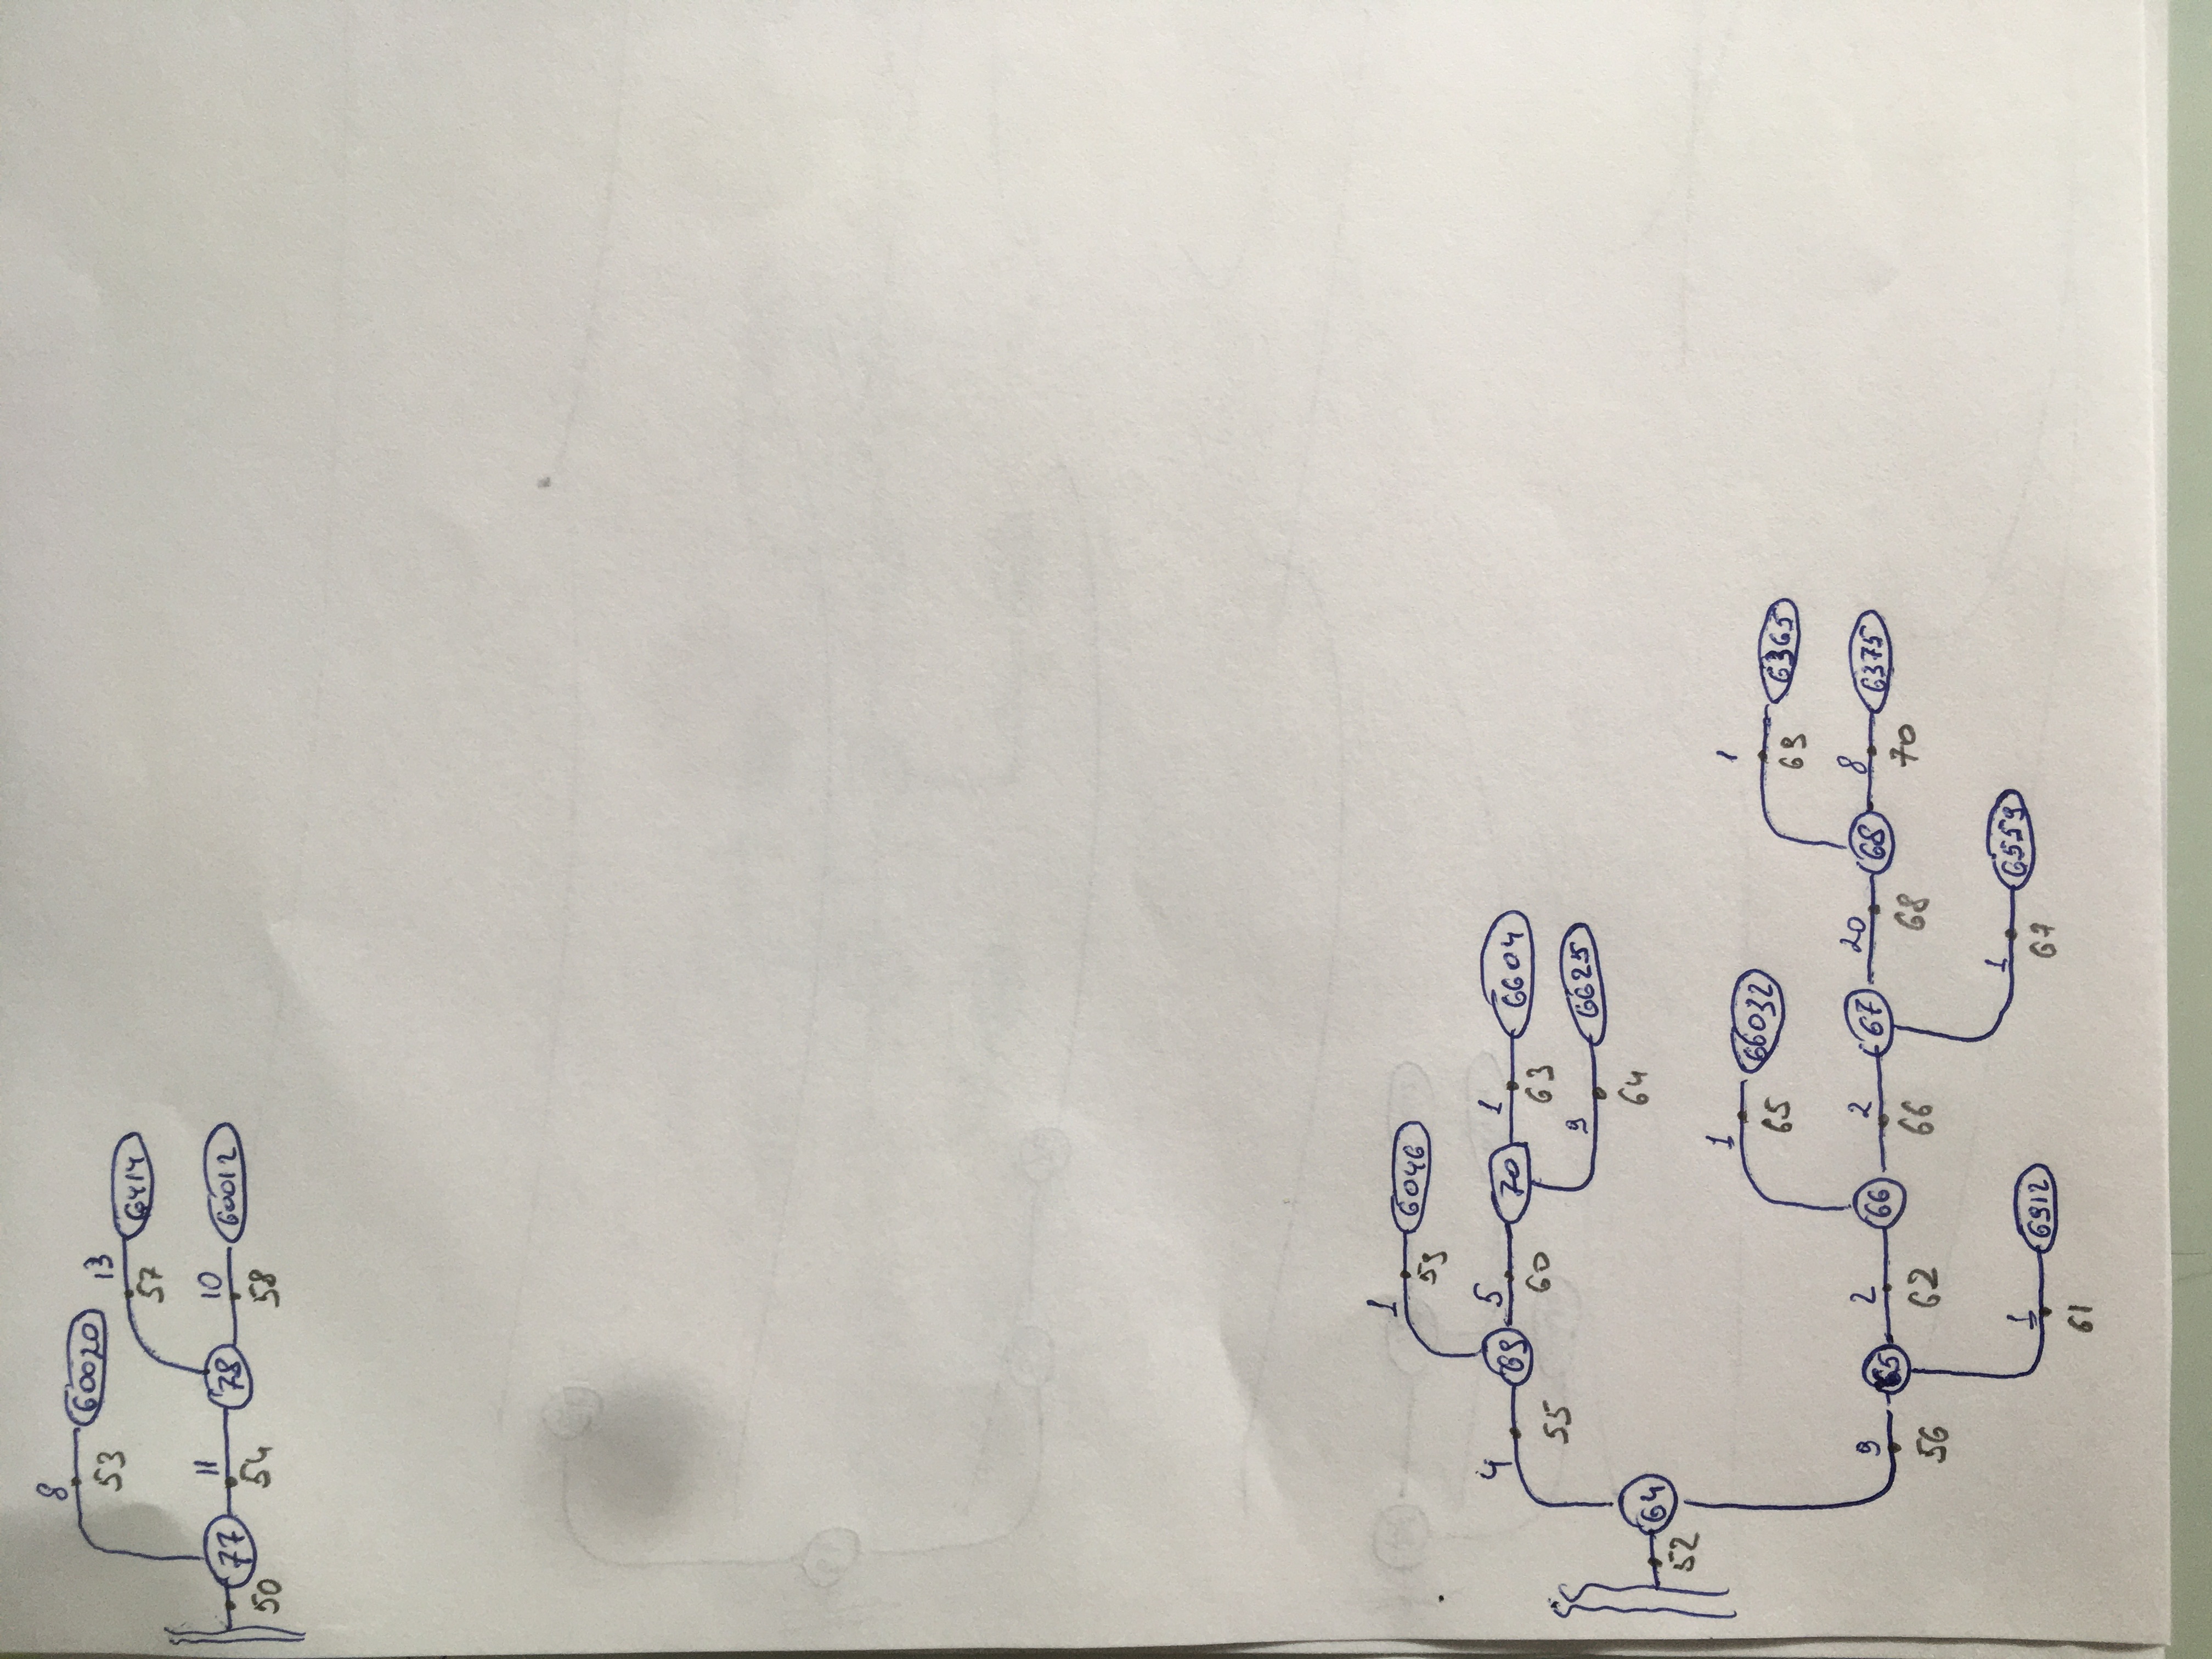 8
53 60020
13
57 6414
50 77 11 54 78 10 58 60012
1
59 6046
4 55 69 5 60 70 1 63 6604
9 64 6625
52 64
1
65 66032
1
69 6365
9 56 65 2 62 66 2 66 67 20 68 68 8 70 6375
1 67 6559
1 61 6912